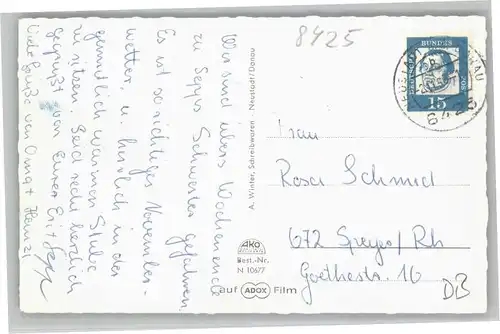 8425
Wir sind übers Wochenende
zu Sepps Schwester gefahren.
Es ist so richtiges November-
wetter, u. herrlich in der
gemütlich warmen Stube
zu sitzen. Seid recht herzlich
gegrüßt von Eurer
Viele Grüße von Oma +
A. Winter, Schreibwaren · Neustadt/Donau
AKO
Best.-Nr.
N 10677
auf ADOX Film
DEUTSCHE
BUNDES
POST
15
8425
Frau
Rosa Schmid
672 Speyer/Rh
Goethestr. 16
DB